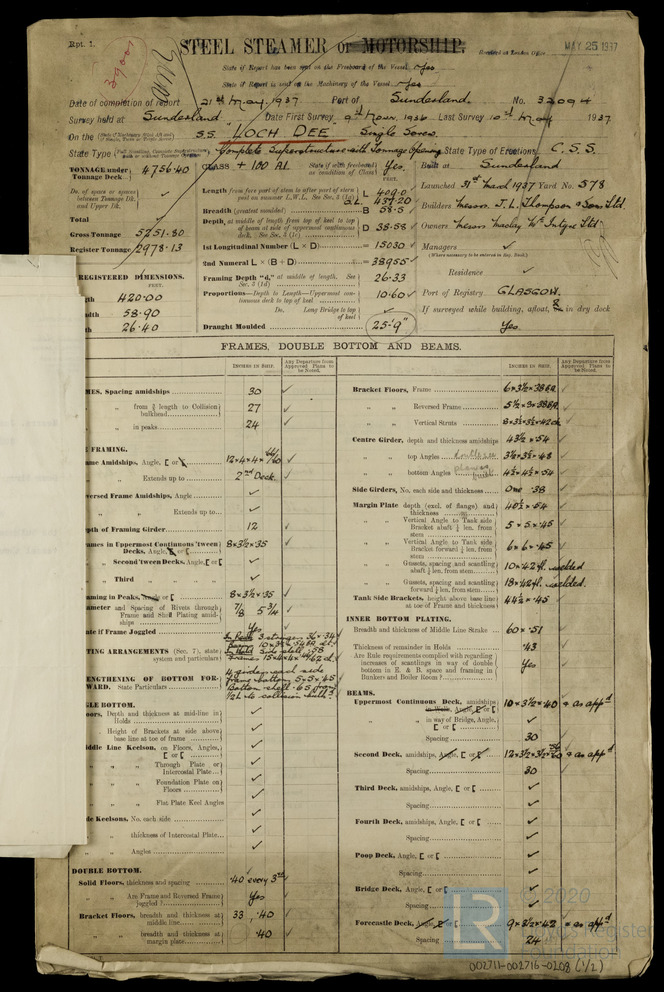 Rpt. 1.
STEEL STEAMER or MOTORSHIP.
Received at London Office
MAY 25 1937
State if Report has been sent on the Freeboard of the Vessel Yes
State if Report is sent on the Machinery of the Vessel Yes
Date of completion of report 21st May, 1937 Port of Sunderland. No. 32094
Survey held at Sunderland Date First Survey 9th Novr. 1936 Last Survey 10th May 1937
On the S.S. LOCH DEE Single Screw.
State Type Complete Superstructure with Tonnage Opening State Type of Erections C.S.S.
TONNAGE under Tonnage Deck 4756.40
CLASS + 100 A1 State if with freeboard as condition of Class Yes.
Built at Sunderland
Launched 31st March 1937 Yard No. 578
Builders Messrs J. L. Thompson & Sons Ltd
Owners Messrs Maclay & McIntyre Ltd
Managers ✓
(Where necessary to be entered in Reg. Book.)
Residence ✓
Port of Registry GLASGOW.
If surveyed while building, afloat, & in dry dock
Yes.
Do. of space or spaces between Tonnage Dk. and Upper Dk. ✓
Total ✓
Gross Tonnage 5251.80
Register Tonnage 2978.13
REGISTERED DIMENSIONS.
FEET.
420.00
58.90
26.40
FEET.
Length from fore part of stem to after part of stern post on summer L.W.L. See Sec. 3 (1a) L 409.0
Breadth (greatest moulded) B 58.5
Depth, at middle of length from top of keel to top of beam at side of uppermost continuous deck. See Sec. 3 (1c) D 38.58
1st Longitudinal Number (L × D) = 15030
2nd Numeral L × (B + D) = 38955
Framing Depth "d," at middle of length. See Sec. 3 (1d) 26.33
Proportions—Depth to Length—Uppermost continuous deck to top of keel 10.60
Do. Long Bridge to top of keel
Draught Moulded 25'-9"
FRAMES, DOUBLE BOTTOM AND BEAMS.
INCHES IN SHIP. Any Departure from Approved Plans to be Noted.
INCHES IN SHIP. Any Departure from Approved Plans to be Noted.
MES. Spacing amidships 30 ✓
" " from ⅗ length to Collision bulkhead 27 ✓
" " in peaks 24 ✓
FRAMING.
ame Amidships, Angle, [ or
" " Extends up to 2nd Deck
versed Frame Amidships, Angle ✓
" " Extends up to ✓
pth of Framing Girder 12 ✓
ames in Uppermost Continuous 'tween Decks, Angle, [ or [ 8×3½×.35 ✓
" " Second 'tween Decks, Angle, [ or [ ✓
" " Third " " ✓
aming in Peaks, Angle or [ 8×3½×.35 ✓
ameter and Spacing of Rivets through Frame and Shell Plating amidships 7/8 5¾
ate if Frame Joggled Yes
TING ARRANGEMENTS (Sec. 7), state system and particulars
ENGTHENING OF BOTTOM FORWARD. State Particulars
4 girders each side
Frame bottom 5×5×.45
GLE BOTTOM.
oors, Depth and thickness at mid-line in Holds ✓
" Height of Brackets at side above base line at toe of frame ✓
iddle Line Keelson, on Floors, Angles, [ or [ ✓
" " Through Plate or Intercostal Plate ✓
" " Foundation Plate on Floors ✓
" " Flat Plate Keel Angles ✓
de Keelsons, No. each side ✓
" " thickness of Intercostal Plate ✓
" " Angles ✓
DOUBLE BOTTOM.
Solid Floors, thickness and spacing .40 every 3rd ✓
" " Are Frame and Reversed Frame joggled? Yes
Bracket Floors, breadth and thickness at middle line 33, .40
" " breadth and thickness at margin plate .40
Bracket Floors, Frame
" " Reversed Frame
" " Vertical Struts
Centre Girder, depth and thickness amidships 43½ × .54
" " top Angles 3½×3½×.48
" " bottom Angles 4½×4½×.54
Side Girders, No. each side and thickness One .38
Margin Plate depth (excl. of flange) and thickness 40½ × .54
" " Vertical Angle to Tank side Bracket abaft ¼ len. from stem 5×5×.45
" " Vertical Angle to Tank side Bracket forward ¼ len. from stem 6×6×.45
" " Gussets, spacing and scantling abaft ¼ len. from stem 10×.42 fl. welded
" " Gussets, spacing and scantling forward ¼ len. from stem 18×.42 fl. welded.
Tank Side Brackets, height above base line at toe of Frame and thickness 44½ × .45
INNER BOTTOM PLATING.
Breadth and thickness of Middle Line Strake 60×.51
Thickness of remainder in Holds .43
Are Rule requirements complied with regarding increases of scantlings in way of double bottom in E. & B. space and framing in Bunkers and Boiler Room? Yes
BEAMS.
Uppermost Continuous Deck, amidships in Wells, Angle, [ or [ 10×3½×.40 & as appd
" " in way of Bridge, Angle, [ or [ ✓
Spacing 30
Second Deck, amidships, Angle, [ or [ & as appd
Spacing 30
Third Deck, amidships, Angle, [ or [ ✓
Spacing ✓
Fourth Deck, amidships, Angle, [ or [ ✓
Spacing ✓
Poop Deck, Angle, [ or [ ✓
Spacing ✓
Bridge Deck, Angle, [ or [ ✓
Spacing ✓
Forecastle Deck, Angle, [ or [ 9×3½×.42 & as appd
Spacing 24
LR
© 2020
Lloyd's Register
Foundation
002711-002716-0208 (1/2)